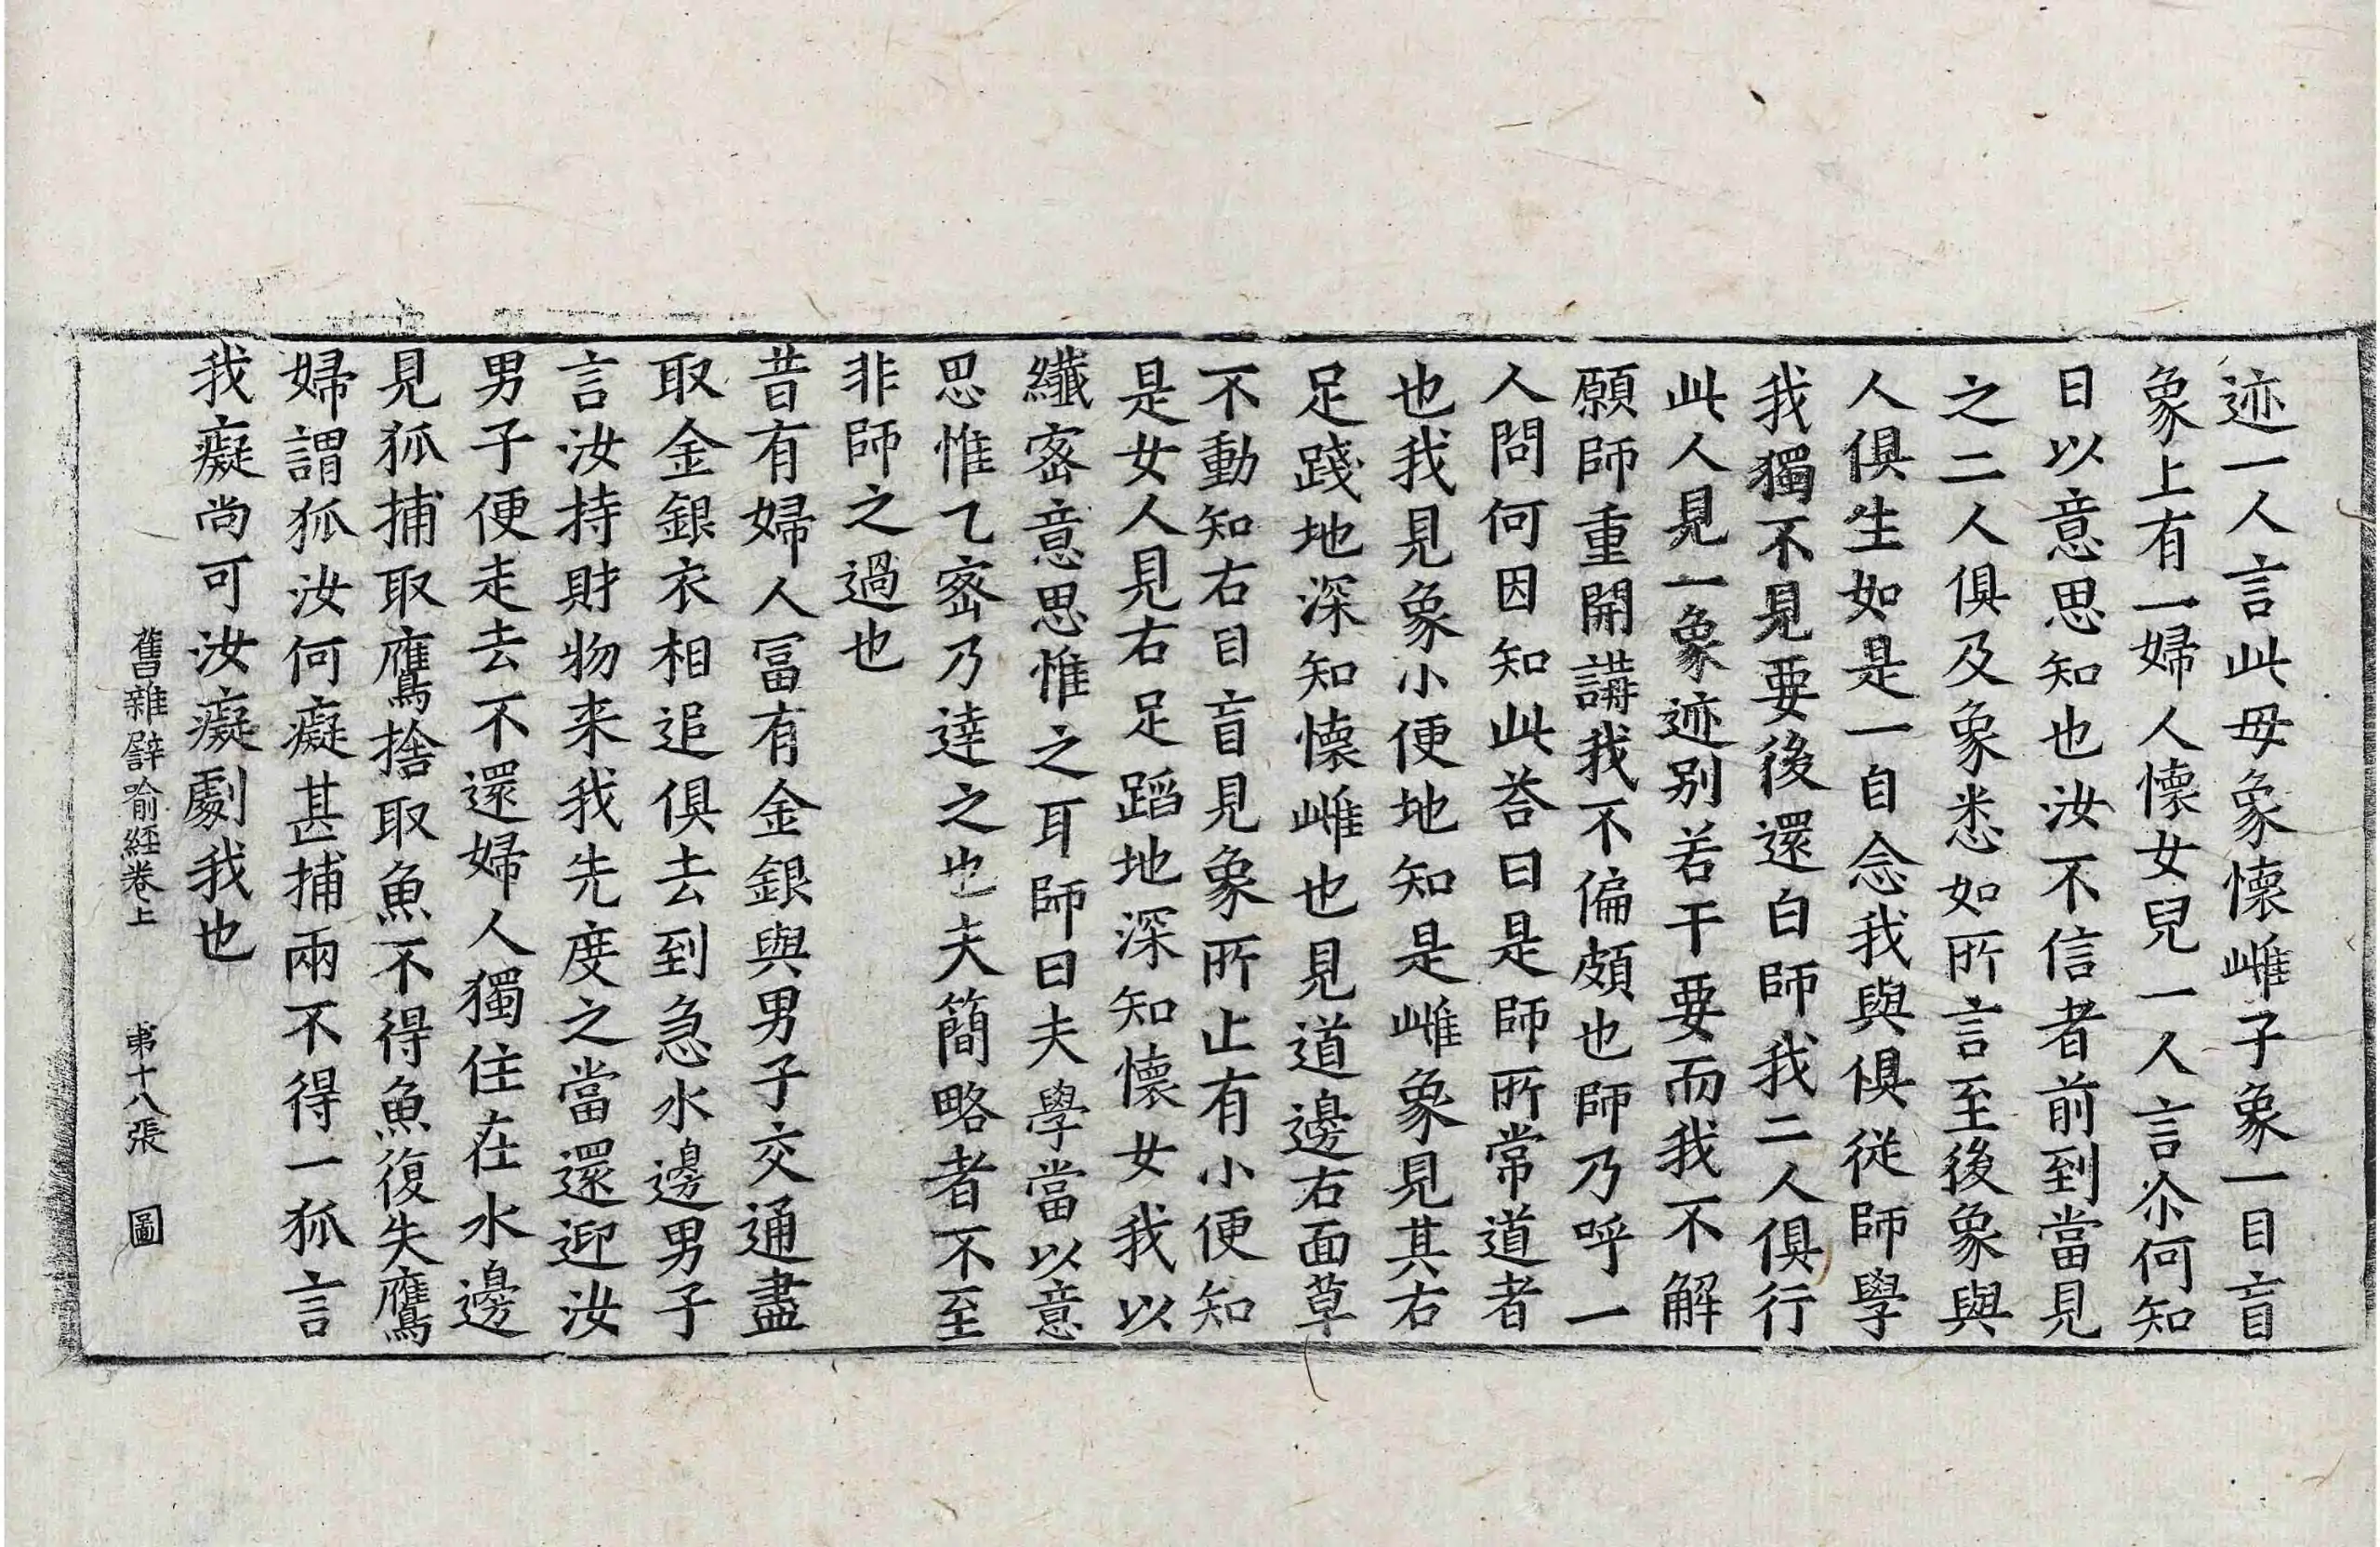 迹一人言此母象懷雌子象一目盲
象上有一婦人懷女兒一人言尒何知
曰以意思知也汝不信者前到當見
之二人俱及象悉如所言至後象與
人俱生如是一自念我與俱從師學
我獨不見要後還白師我二人俱行
此人見一象迹别若干要而我不解
願師重開講我不偏頗也師乃呼一
人問何因知此荅曰是師所常道者
也我見象小便地知是雌象見其右
足踐地深知懷雌也見道邊右面草
不動知右目盲見象所止有小便知
是女人見右足蹈地深知懷女我以
纖宻意思惟之耳師曰夫學當以意
思惟乙宻乃達之也夫簡略者不至
非師之過也
昔有婦人冨有金銀與男子交通盡
取金銀衣相追俱去到急水邊男子
言汝持財物来我先度之當還迎汝
男子便走去不還婦人獨住在水邊
見狐捕取鷹捨取魚不得魚復失鷹
婦謂狐汝何癡甚捕兩不得一狐言
我癡尚可汝癡劇我也
舊雜譬喻經卷上 苐十八張 圖